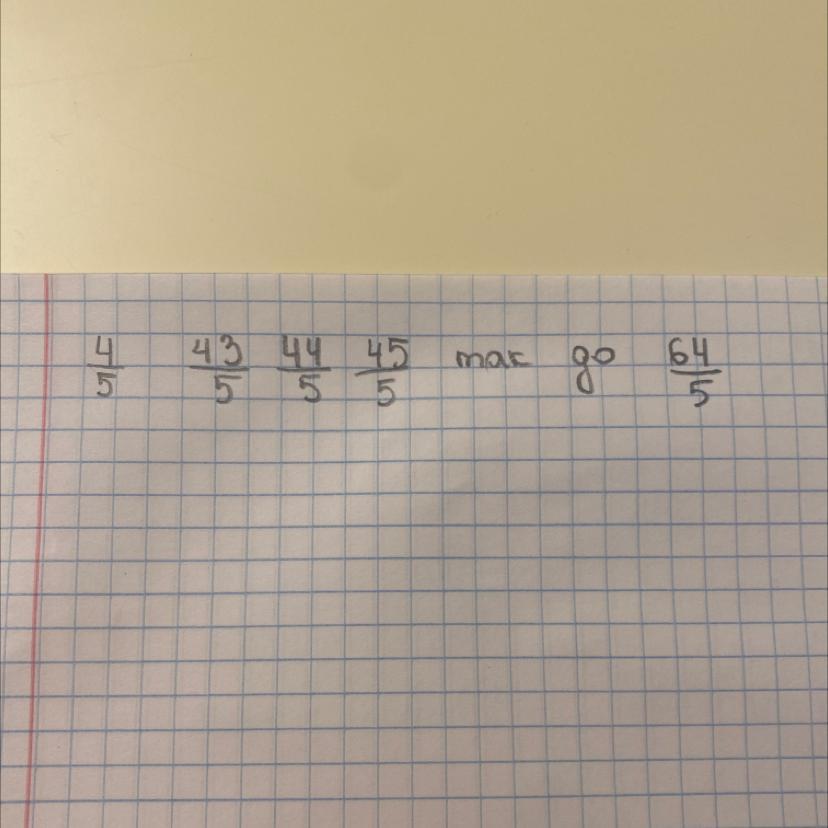 4/5 43/5 44/5 45/5 так go 64/5